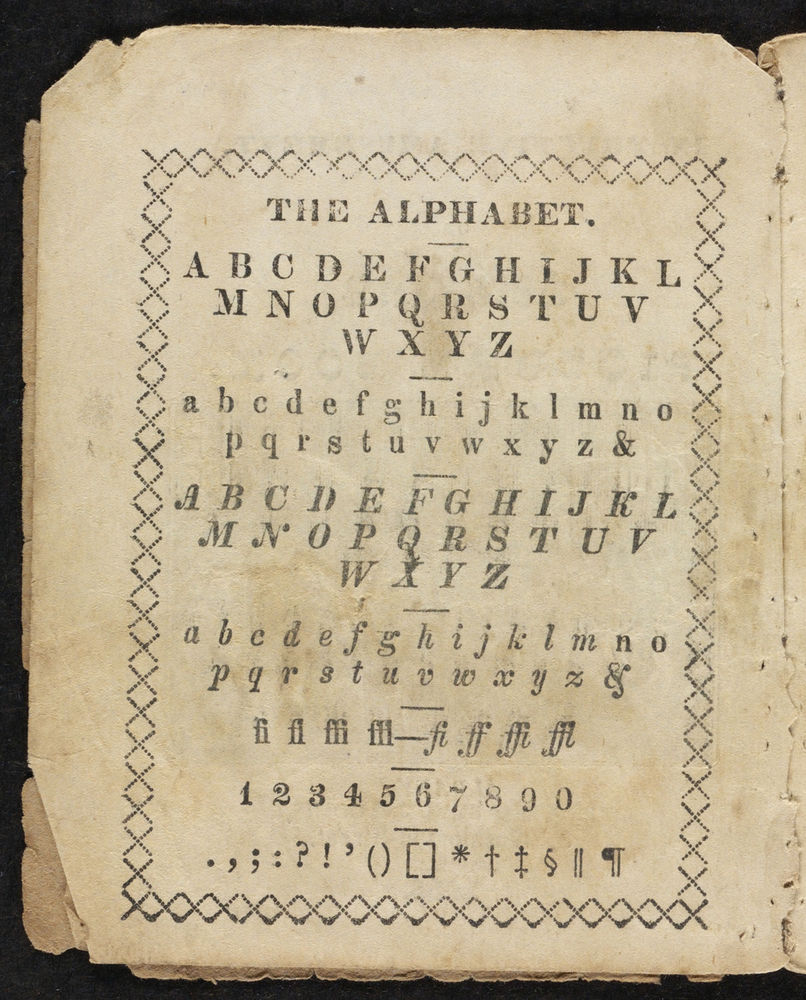 THE ALPHABET.
A B C D E F G H I J K L
M N O P Q R S T U V
W X Y Z
a b c d e f g h i j k l m n o
p q r s t u v w x y z &
A B C D E F G H I J K L
M N O P Q R S T U V
W X Y Z
a b c d e f g h i j k l m n o
p q r s t u v w x y z &
fi fl ffi ffl—fi ff ffi ffl
1 2 3 4 5 6 7 8 9 0
. , ; : ? ! ’ () [] * † ‡ § ‖ ¶